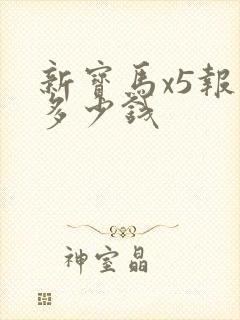 新寶馬x5報
多少錢
神室晶